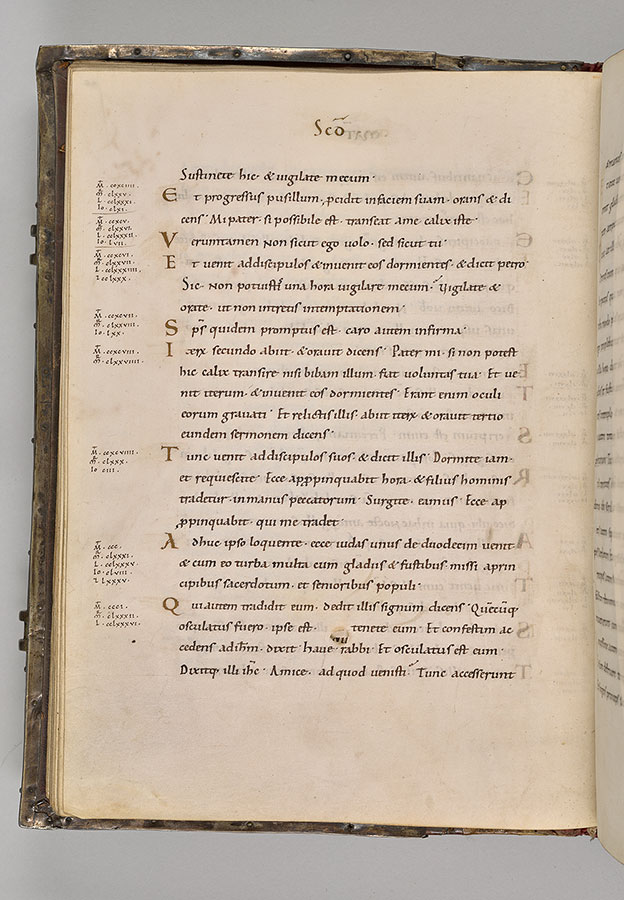 Scd̄
Sustinete hic· & uigilate mecum·
Et progressus pusillum· p̱cidit infaciem suam· orans & di
cens· Mi pater· si possibile est· transeat ame calix iste·
Veruntamen non sicut ego uolo· sed sicut tu·
Et uenit addiscipulos & inuenit eos dormientes· & dicit petro·
Sic· Non potuistis una hora uigilare mecum· Vigilate &
orate· ut non intretis intemptationem·
Sps̄ quidem promptus est· caro autem infirma·
Iterū secundo abiit· & orauit dicens· Pater mi· si non potest
hic calix transire nisi bibam illum· fiat uoluntas tua· Et ue
nit iterum· & inuenit eos dormientes· Erant enim oculi
eorum grauati· Et relictis illis· abiit iterū· & orauit tertio
eundem sermonem dicens·
Tunc uenit addiscipulos suos· & dicit illis· Dormite iam·
et requiescite· Ecce appropinquabit hora· & filius hominis
tradetur inmanus peccatorum· Surgite· eamus· Ecce ap
propinquabit· qui me tradet·
Adhuc ipso loquente· ecce iudas unus de duodecim uenit·
& cum eo turba multa cum gladiis & fustibus missi aprin
cipibus sacerdotum· et senioribus populi·
Qui autem tradidit eum· dedit illis signum dicens· Quēcūq;
osculatus fuero· ipse est· tenete eum· Et confestim ac
cedens adihm̄· dixit· haue rabbi· Et osculatus est eum·
Dixitq; illi ihc̄· Amice· ad quod uenisti· Tunc accesserunt